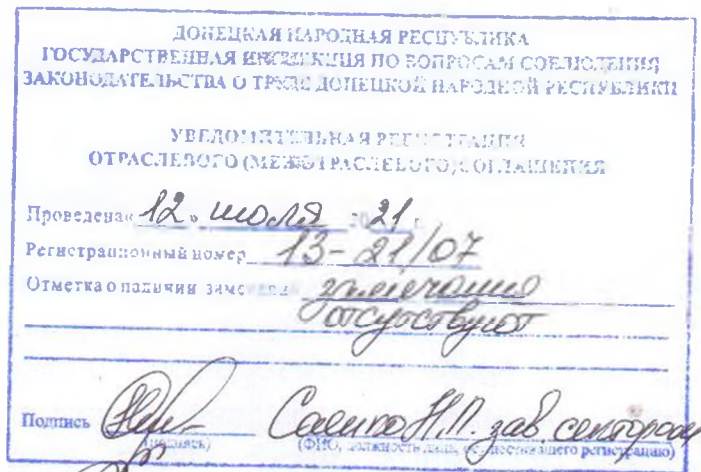 ДОНЕЦКАЯ НАРОДНАЯ РЕСПУБЛИКА
ГОСУДАРСТВЕННАЯ ИНСПЕКЦИЯ ПО ВОПРОСАМ СОБЛЮДЕНИЯ
ЗАКОНОДАТЕЛЬСТВА О ТРУДЕ ДОНЕЦКОЙ НАРОДНОЙ РЕСПУБЛИКИ
УВЕДОМИТЕЛЬНАЯ РЕГИСТРАЦИЯ
ОТРАСЛЕВОГО (МЕЖОТРАСЛЕВОГО) СОГЛАШЕНИЯ
Проведена « 12 » июля 2021 г.
Регистрационный номер 13-21/07
Отметка о наличии замечаний замечания
отсутствуют
Подпись Н.П. зав. сектором
(подпись) (ФИО, должность лица, осуществившего регистрацию)